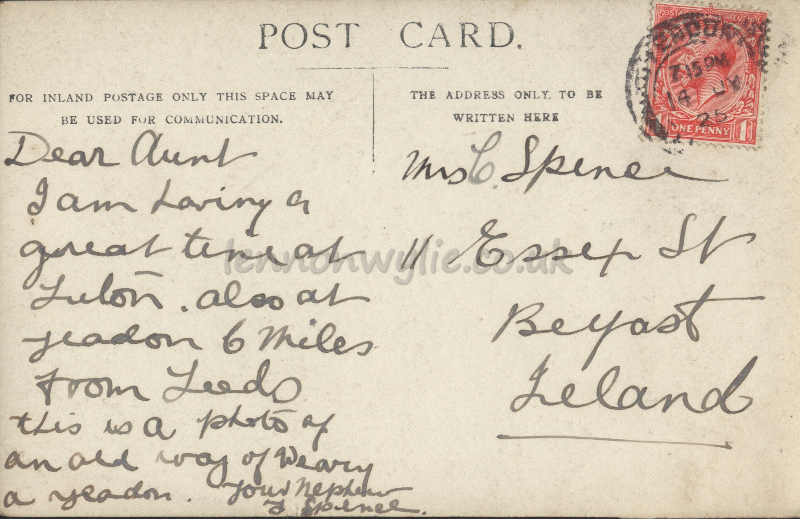 POST CARD.
FOR INLAND POSTAGE ONLY THIS SPACE MAY
BE USED FOR COMMUNICATION.
THE ADDRESS ONLY TO BE
WRITTEN HERE
Dear Aunt
I am having a
great time at
Luton. also at
yeadon 6 Miles
from Leeds
this is a photo of
an old way of
a yeadon. your Nephew
Spence.
Mrs C. Spence
11 Essex St
Belfast
Ireland
7.15 PM
14 JY
25
ONE PENNY
lennonwylie.co.uk